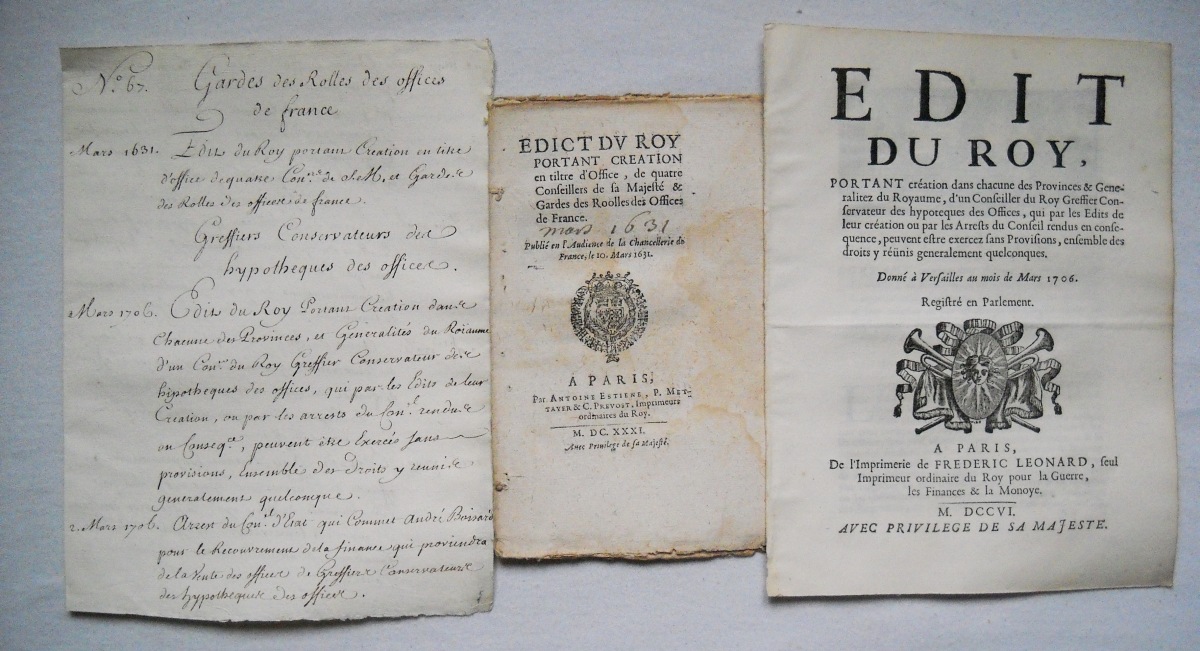 N.º 67. Gardes des Rolles des offices
de france
Mars 1631. Edit du Roy portant Creation en titre
d'office de quatre Con.ers de S.M. et Gardes
des Rolles des offices de france.
Greffiers Conservateurs des
hypotheques des offices.
Mars 1706. Edit du Roy Portant Creation dans
Chacune des Provinces, et Generalités du Roiaume
d'un Con.er du Roy Greffier Conservateur des
hipotheques des offices, qui par les Edits de leur
Creation, ou par les arrests du Con.el rendus
en Conseq.ce, peuvent être Exercés sans
provisions, Ensemble des Droits y reunis
generalement quelconque.
2. Mars 1706. Arrest du Con.el d'Etat qui Commet André Boisard
pour le Recouvrement de la finance qui proviendra
de la Vente des offices de Greffiers Conservateurs
des hypotheques des offices.
EDICT DV ROY
PORTANT CREATION
en tiltre d'Office, de quatre
Conseillers de sa Majesté &
Gardes des Roolles des Offices
de France.
mars 1631
Publié en l'Audience de la Chancellerie de
France, le 10. Mars 1631.
A PARIS,
Par ANTOINE ESTIENE, P. MET-
TAYER & C. PREVOST, Imprimeurs
ordinaires du Roy.
M. DC. XXXI.
Avec Privilege de sa Majesté.
EDIT
DU ROY,
PORTANT création dans chacune des Provinces & Gene-
ralitez du Royaume, d'un Conseiller du Roy Greffier Con-
servateur des hypoteques des Offices, qui par les Edits de
leur création ou par les Arrests du Conseil rendus en conse-
quence, peuvent estre exercez sans Provisions, ensemble des
droits y réünis generalement quelconques.
Donné à Versailles au mois de Mars 1706.
Registré en Parlement.
A PARIS,
De l'Imprimerie de FREDERIC LEONARD, seul
Imprimeur ordinaire du Roy pour la Guerre,
les Finances & la Monoye.
M. DCCVI.
AVEC PRIVILEGE DE SA MAJESTE.